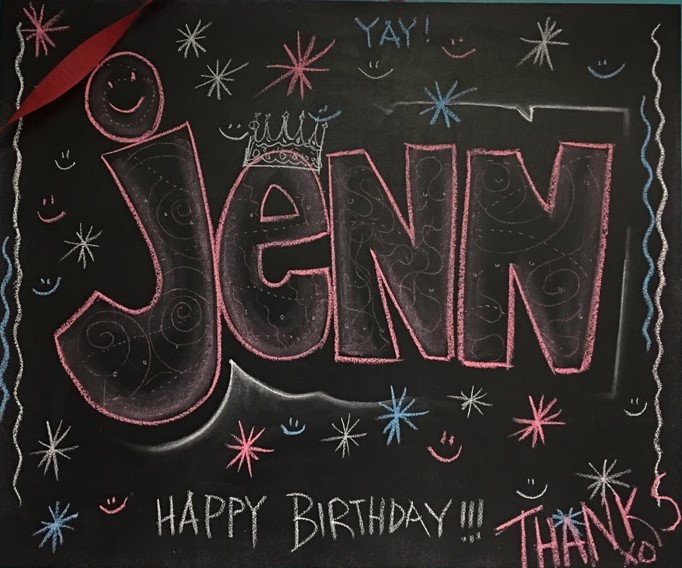 YAY!
jENN
HAPPY BIRTHDAY!!!
THANKS
XO